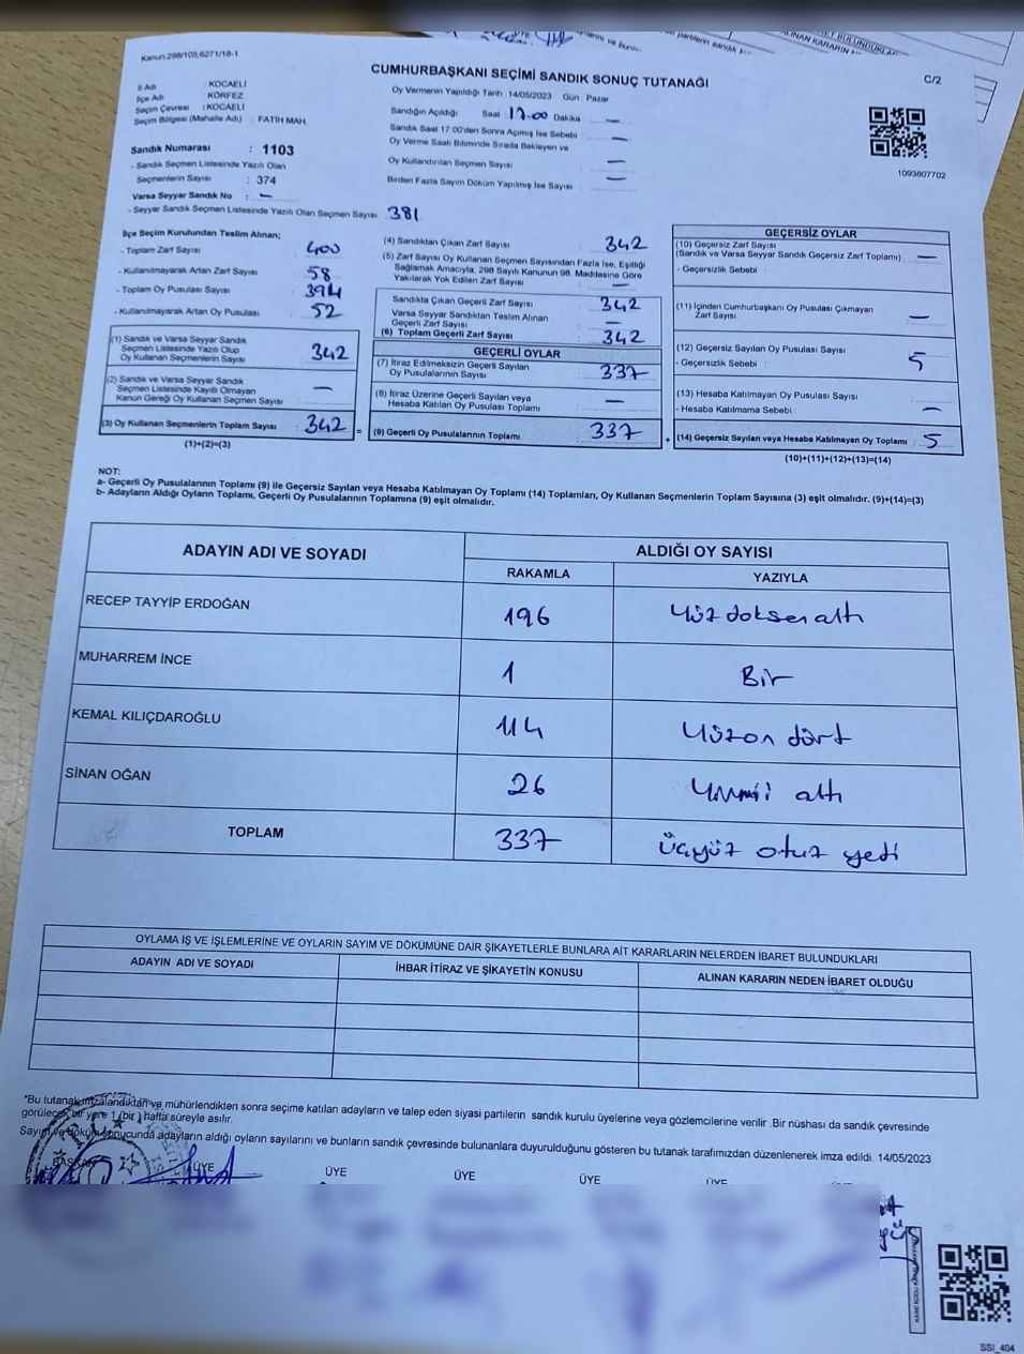 Kanun:298/105,6271/18-1
CUMHURBAŞKANI SEÇİMİ SANDIK SONUÇ TUTANAĞI
C/2
İli Adı : KOCAELİ
İlçe Adı : KÖRFEZ
Seçim Çevresi : KOCAELİ
Seçim Bölgesi (Mahalle Adı) : FATİH MAH.
Oy Vermenin Yapıldığı Tarih : 14/05/2023 Gün : Pazar
Sandığın Açıldığı Saat 17.00 Dakika —
Sandık Saat 17:00'den Sonra Açılmış İse Sebebi —
Oy Verme Saati Bitiminde Sırada Bekleyen ve
Oy Kullandırılan Seçmen Sayısı —
Birden Fazla Sayım Döküm Yapılmış İse Sayısı —
1093807702
Sandık Numarası : 1103
- Sandık Seçmen Listesinde Yazılı Olan
Seçmenlerin Sayısı : 374
Varsa Seyyar Sandık No : —
- Seyyar Sandık Seçmen Listesinde Yazılı Olan Seçmen Sayısı 381
İlçe Seçim Kurulundan Teslim Alınan;
- Toplam Zarf Sayısı 400
- Kullanılmayarak Artan Zarf Sayısı 58
- Toplam Oy Pusulası Sayısı 394
- Kullanılmayarak Artan Oy Pusulası 52
(1) Sandık ve Varsa Seyyar Sandık
Seçmen Listesinde Yazılı Olup
Oy Kullanan Seçmenlerin Sayısı 342
(2) Sandık ve Varsa Seyyar Sandık
Seçmen Listesinde Kayıtlı Olmayan
Kanun Gereği Oy Kullanan Seçmen Sayısı —
(3) Oy Kullanan Seçmenlerin Toplam Sayısı 342
(1)+(2)=(3)
(4) Sandıktan Çıkan Zarf Sayısı 342
(5) Zarf Sayısı Oy Kullanan Seçmen Sayısından Fazla İse, Eşitliği
Sağlamak Amacıyla, 298 Sayılı Kanunun 98. Maddesine Göre
Yakılarak Yok Edilen Zarf Sayısı —
Sandıkta Çıkan Geçerli Zarf Sayısı 342
Varsa Seyyar Sandıktan Teslim Alınan
Geçerli Zarf Sayısı —
(6) Toplam Geçerli Zarf Sayısı 342
GEÇERLİ OYLAR
(7) İtiraz Edilmeksizin Geçerli Sayılan
Oy Pusulalarının Sayısı 337
(8) İtiraz Üzerine Geçerli Sayılan veya
Hesaba Katılan Oy Pusulası Toplamı —
(9) Geçerli Oy Pusulalarının Toplamı 337
GEÇERSİZ OYLAR
(10) Geçersiz Zarf Sayısı
(Sandık ve Varsa Seyyar Sandık Geçersiz Zarf Toplamı) —
- Geçersizlik Sebebi :
(11) İçinden Cumhurbaşkanı Oy Pusulası Çıkmayan
Zarf Sayısı —
(12) Geçersiz Sayılan Oy Pusulası Sayısı
- Geçersizlik Sebebi : 5
(13) Hesaba Katılmayan Oy Pusulası Sayısı
- Hesaba Katılmama Sebebi : —
(14) Geçersiz Sayılan veya Hesaba Katılmayan Oy Toplamı 5
(10)+(11)+(12)+(13)=(14)
NOT:
a- Geçerli Oy Pusulalarının Toplamı (9) ile Geçersiz Sayılan veya Hesaba Katılmayan Oy Toplamı (14) Toplamları, Oy Kullanan Seçmenlerin Toplam Sayısına (3) eşit olmalıdır. (9)+(14)=(3)
b- Adayların Aldığı Oyların Toplamı, Geçerli Oy Pusulalarının Toplamına (9) eşit olmalıdır.
ADAYIN ADI VE SOYADI
ALDIĞI OY SAYISI
RAKAMLA YAZIYLA
RECEP TAYYİP ERDOĞAN 196 Yüz doksan altı
MUHARREM İNCE 1 Bir
KEMAL KILIÇDAROĞLU 114 Yüzon dört
SİNAN OĞAN 26 Yirmi altı
TOPLAM 337 üçyüz otuz yedi
OYLAMA İŞ VE İŞLEMLERİNE VE OYLARIN SAYIM VE DÖKÜMÜNE DAİR ŞİKAYETLERLE BUNLARA AİT KARARLARIN NELERDEN İBARET BULUNDUKLARI
ADAYIN ADI VE SOYADI İHBAR İTİRAZ VE ŞİKAYETİN KONUSU ALINAN KARARIN NEDEN İBARET OLDUĞU
*Bu tutanak imzalandıktan ve mühürlendikten sonra seçime katılan adayların ve talep eden siyasi partilerin sandık kurulu üyelerine veya gözlemcilerine verilir. Bir nüshası da sandık çevresinde
görülecek bir yere 1 (bir) hafta süreyle asılır.
Sayım ve döküm sonucunda adayların aldığı oyların sayılarını ve bunların sandık çevresinde bulunanlara duyurulduğunu gösteren bu tutanak tarafımızdan düzenlenerek imza edildi. 14/05/2023
BAŞKAN ÜYE ÜYE ÜYE ÜYE ÜYE
SSI_404